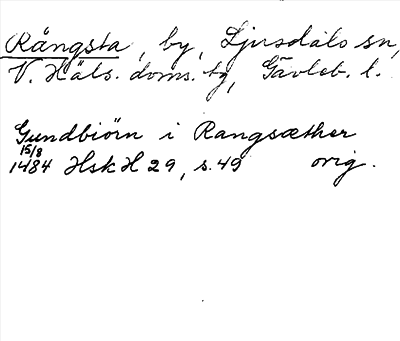 Rångsta, by, Ljusdals sn,
V. Häls. doms. tg, Gävleb. l.
Gundbiörn i Rangsæther
15/8
1484 Hsk H 29, s. 49 orig.